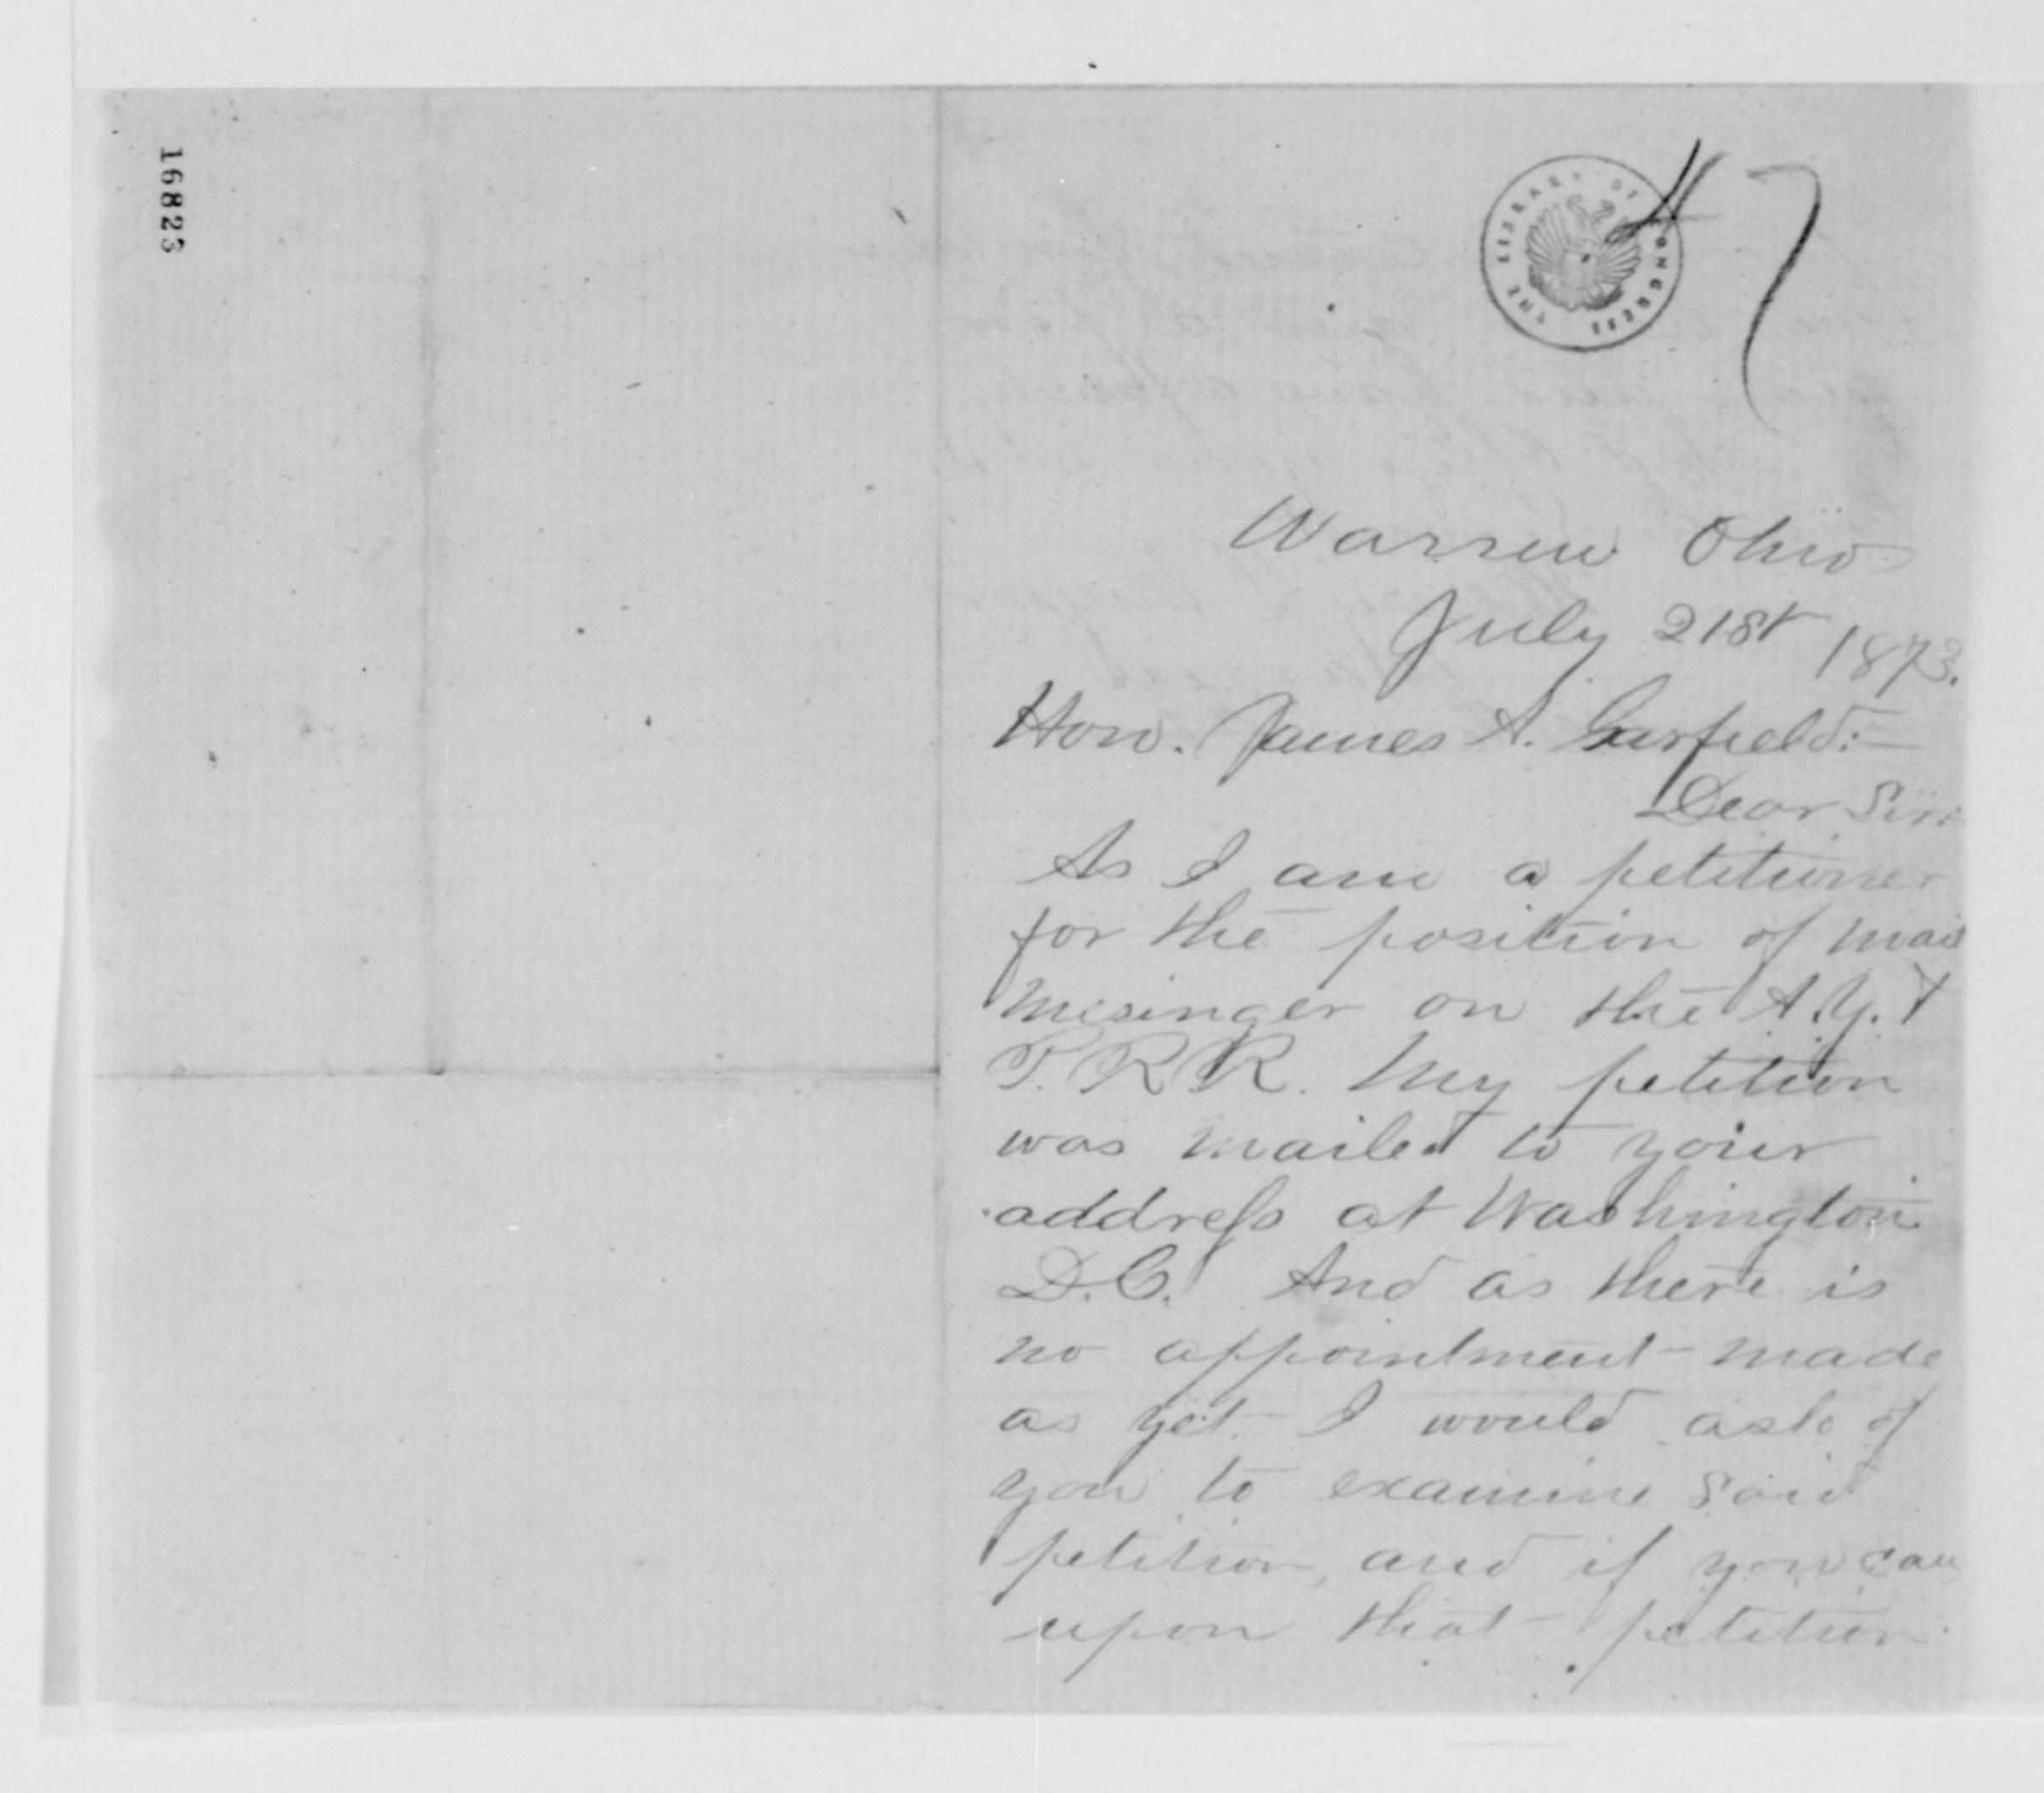 16823
THE LIBRARY OF CONGRESS
Warren Ohio
July 21st 1873.
Hon. James A. Garfield:—
Dear Sir:
As I am a petitioner
for the position of mail
mesinger on the A.Y. &
P. R R. My petition
was mailed to your
address at Washington
D.C. And as there is
no appointment made
as yet I would ask of
you to examine said
petition, and if you can
upon that petition